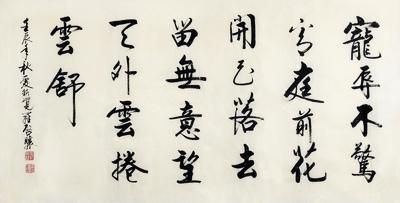 寵辱不驚
看庭前花
開花落去
留無意望
天外雲捲
雲舒
壬辰年秋